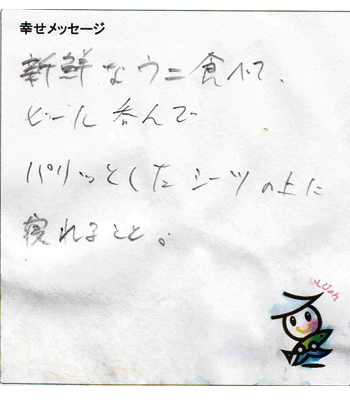 幸せメッセージ
新鮮なウニ食べて、
ビール呑んで
パリッとしたシーツの上に
寝れること。